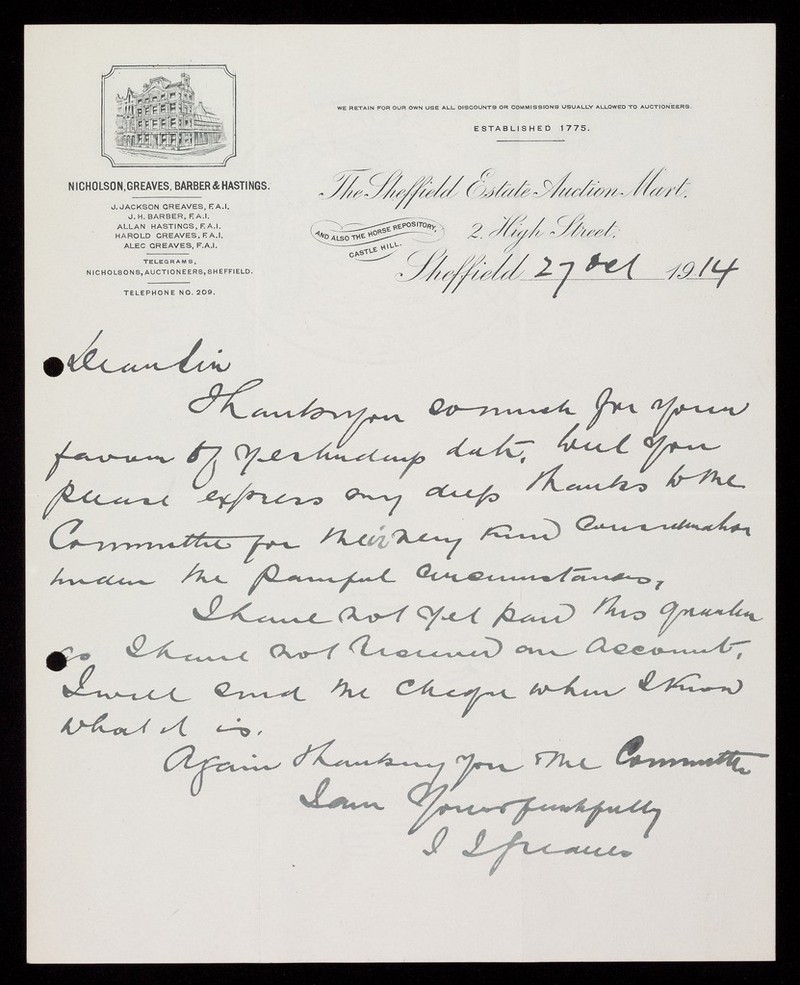 WE RETAIN FOR OUR OWN USE ALL DISCOUNTS OR COMMISSIONS USUALLY ALLOWED TO AUCTIONEERS.
ESTABLISHED 1775.
NICHOLSON, GREAVES, BARBER & HASTINGS.
J. JACKSON GREAVES, F.A.I.
J. H. BARBER, F.A.I.
ALLAN HASTINGS, F.A.I.
HAROLD GREAVES, F.A.I.
ALEC GREAVES, F.A.I.
TELEGRAMS,
NICHOLSONS, AUCTIONEERS, SHEFFIELD.
TELEPHONE NO. 209.
The Sheffield Estate Auction Mart.
AND ALSO THE HORSE REPOSITORY,
CASTLE HILL.
2. High Street.
Sheffield 27 Oct 1914
Dear Sir
Thank you so much for your
favour of yesterdays date, Will you
please express my deep thanks to the
Committee for their very kind consideration
under the painful circumstances,
I have not yet paid this quarter
as I have not received an account,
I will send the cheque when I know
what it is.
Again thanking you & the Committee
I am Yours faithfully
J J Greaves